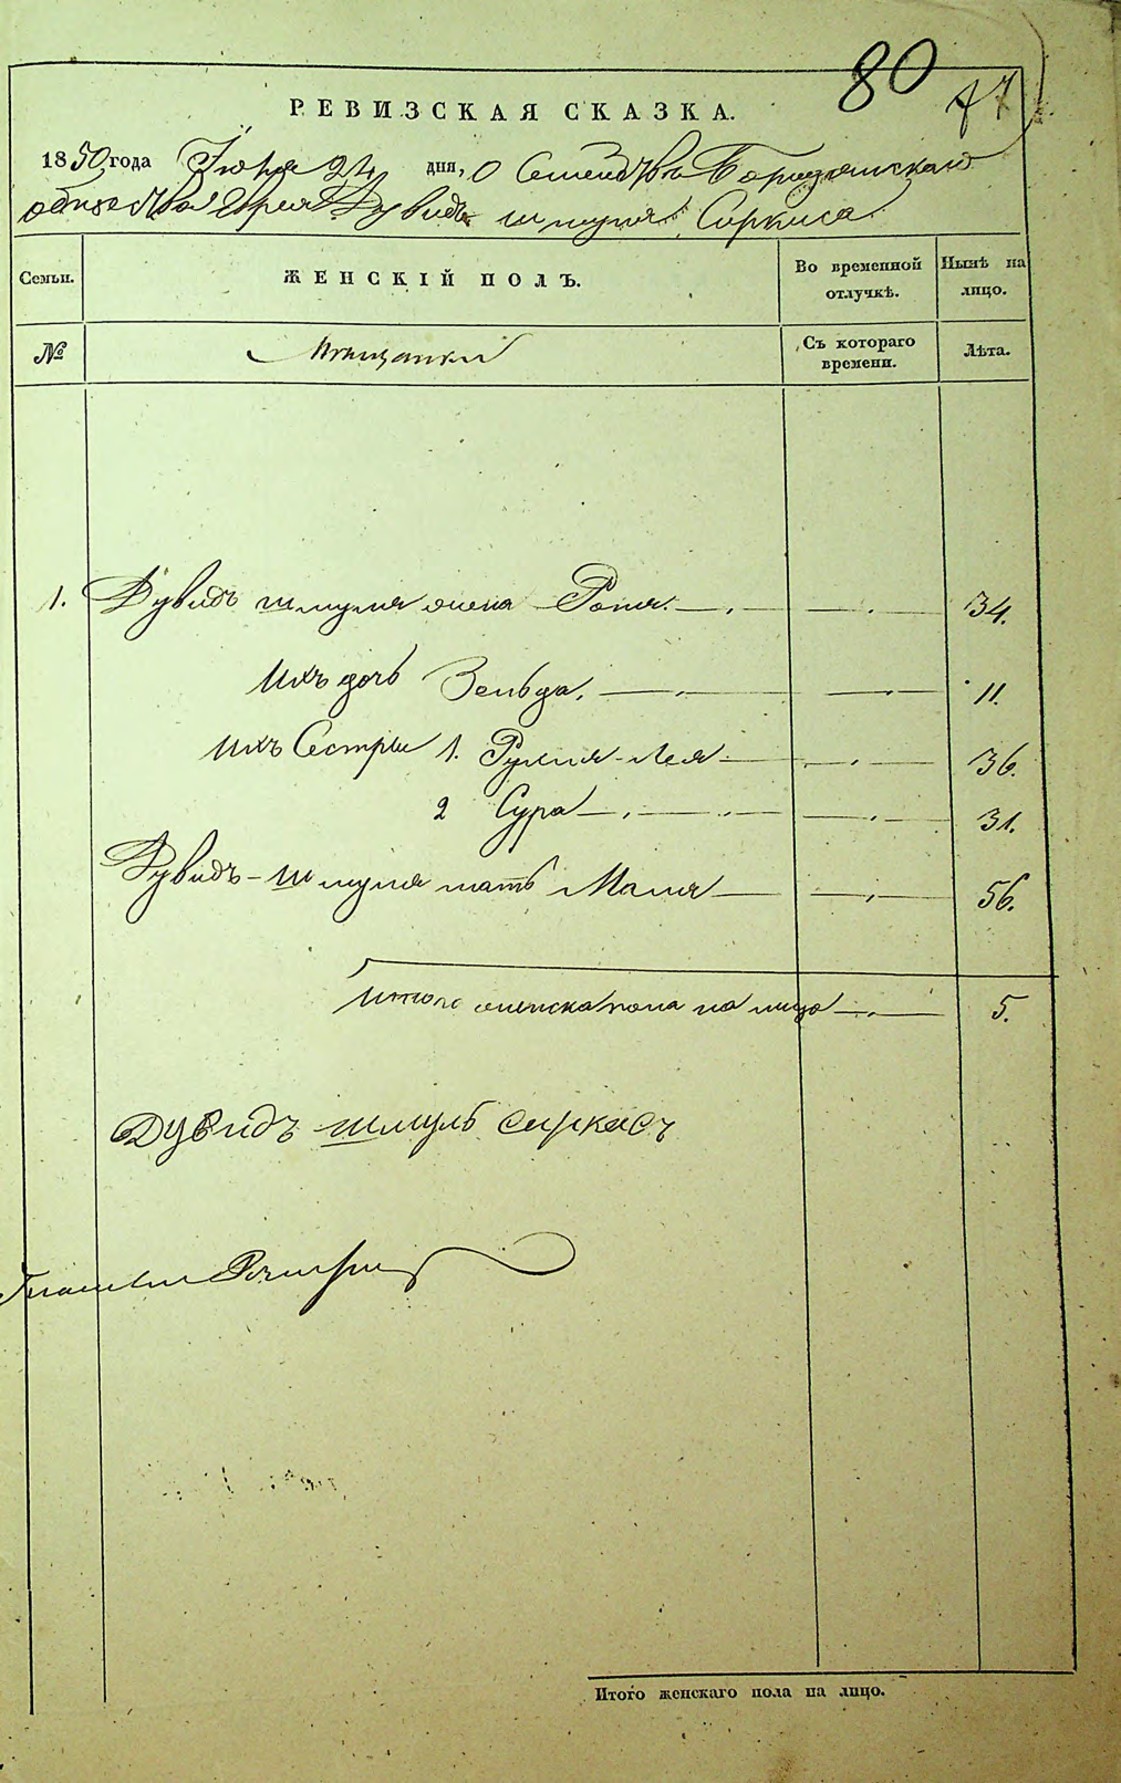 80
47
РЕВИЗСКАЯ СКАЗКА.
1850 года Июня 24 дня, О Семействѣ Борщ
общества Еврея Дувидъ Шмуля Сиркиса
Семьи. ЖЕНСКІЙ ПОЛЪ. Во временной отлучкѣ. Нынѣ на лицо.
№ Мѣщанки Съ котораго времени. Лѣта.
1. Дувидъ шмуля жена Рапля. 34.
Ихъ дочь Зельда. 11.
Ихъ Сестры 1. Рухля-Лея 36.
2 Сура 31.
Дувидъ-Шмуля мать Маля 56.
Итого женска пола на лицо 5.
Дувидъ шмуль сиркисъ
Итого женскаго пола на лицо.